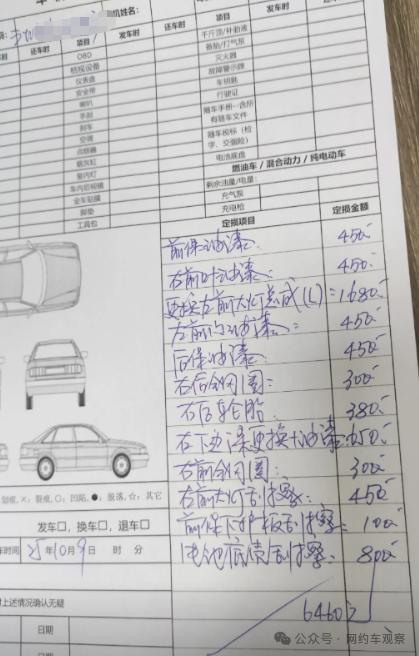 机姓名：
还车时 项目 发车时 还车时 项目 发车时
OBD 千斤顶/补胎液
视频设备 备胎/打气泵
仪表盘 灭火器
安全带 故障警示牌
喇叭 车钥匙
手刹 行驶证
刹车 随车手册--含所有随车文件
空调
点烟器 随车税标（检字、交强险）
烟灰缸
室内灯 电池底盘
车内后视镜 燃油车 / 混合动力 / 纯电动车
全车贴膜 剩余油量/电量：
脚垫 充气泵
工具包 充电枪
定损项目 定损金额
前保油漆： 450
右前叶油漆： 450
更换左前大灯总成(L)= 1680
左前 油漆= 450
后保油漆 450
右后钢圈： 300
右后轮胎 380
右下边梁更换+油漆= 650
右前钢圈： 300
右前大灯刮擦： 450
前保下护板刮擦= 100
电池底 刮擦： 800
6460
划痕，×：裂痕，○：凹陷，●：脱落，☆：其它
发车口，换车口，退车口
车时间 25年10月9日 时 分
上述情况确认无疑
日期
日期
公众号 · 网约车观察